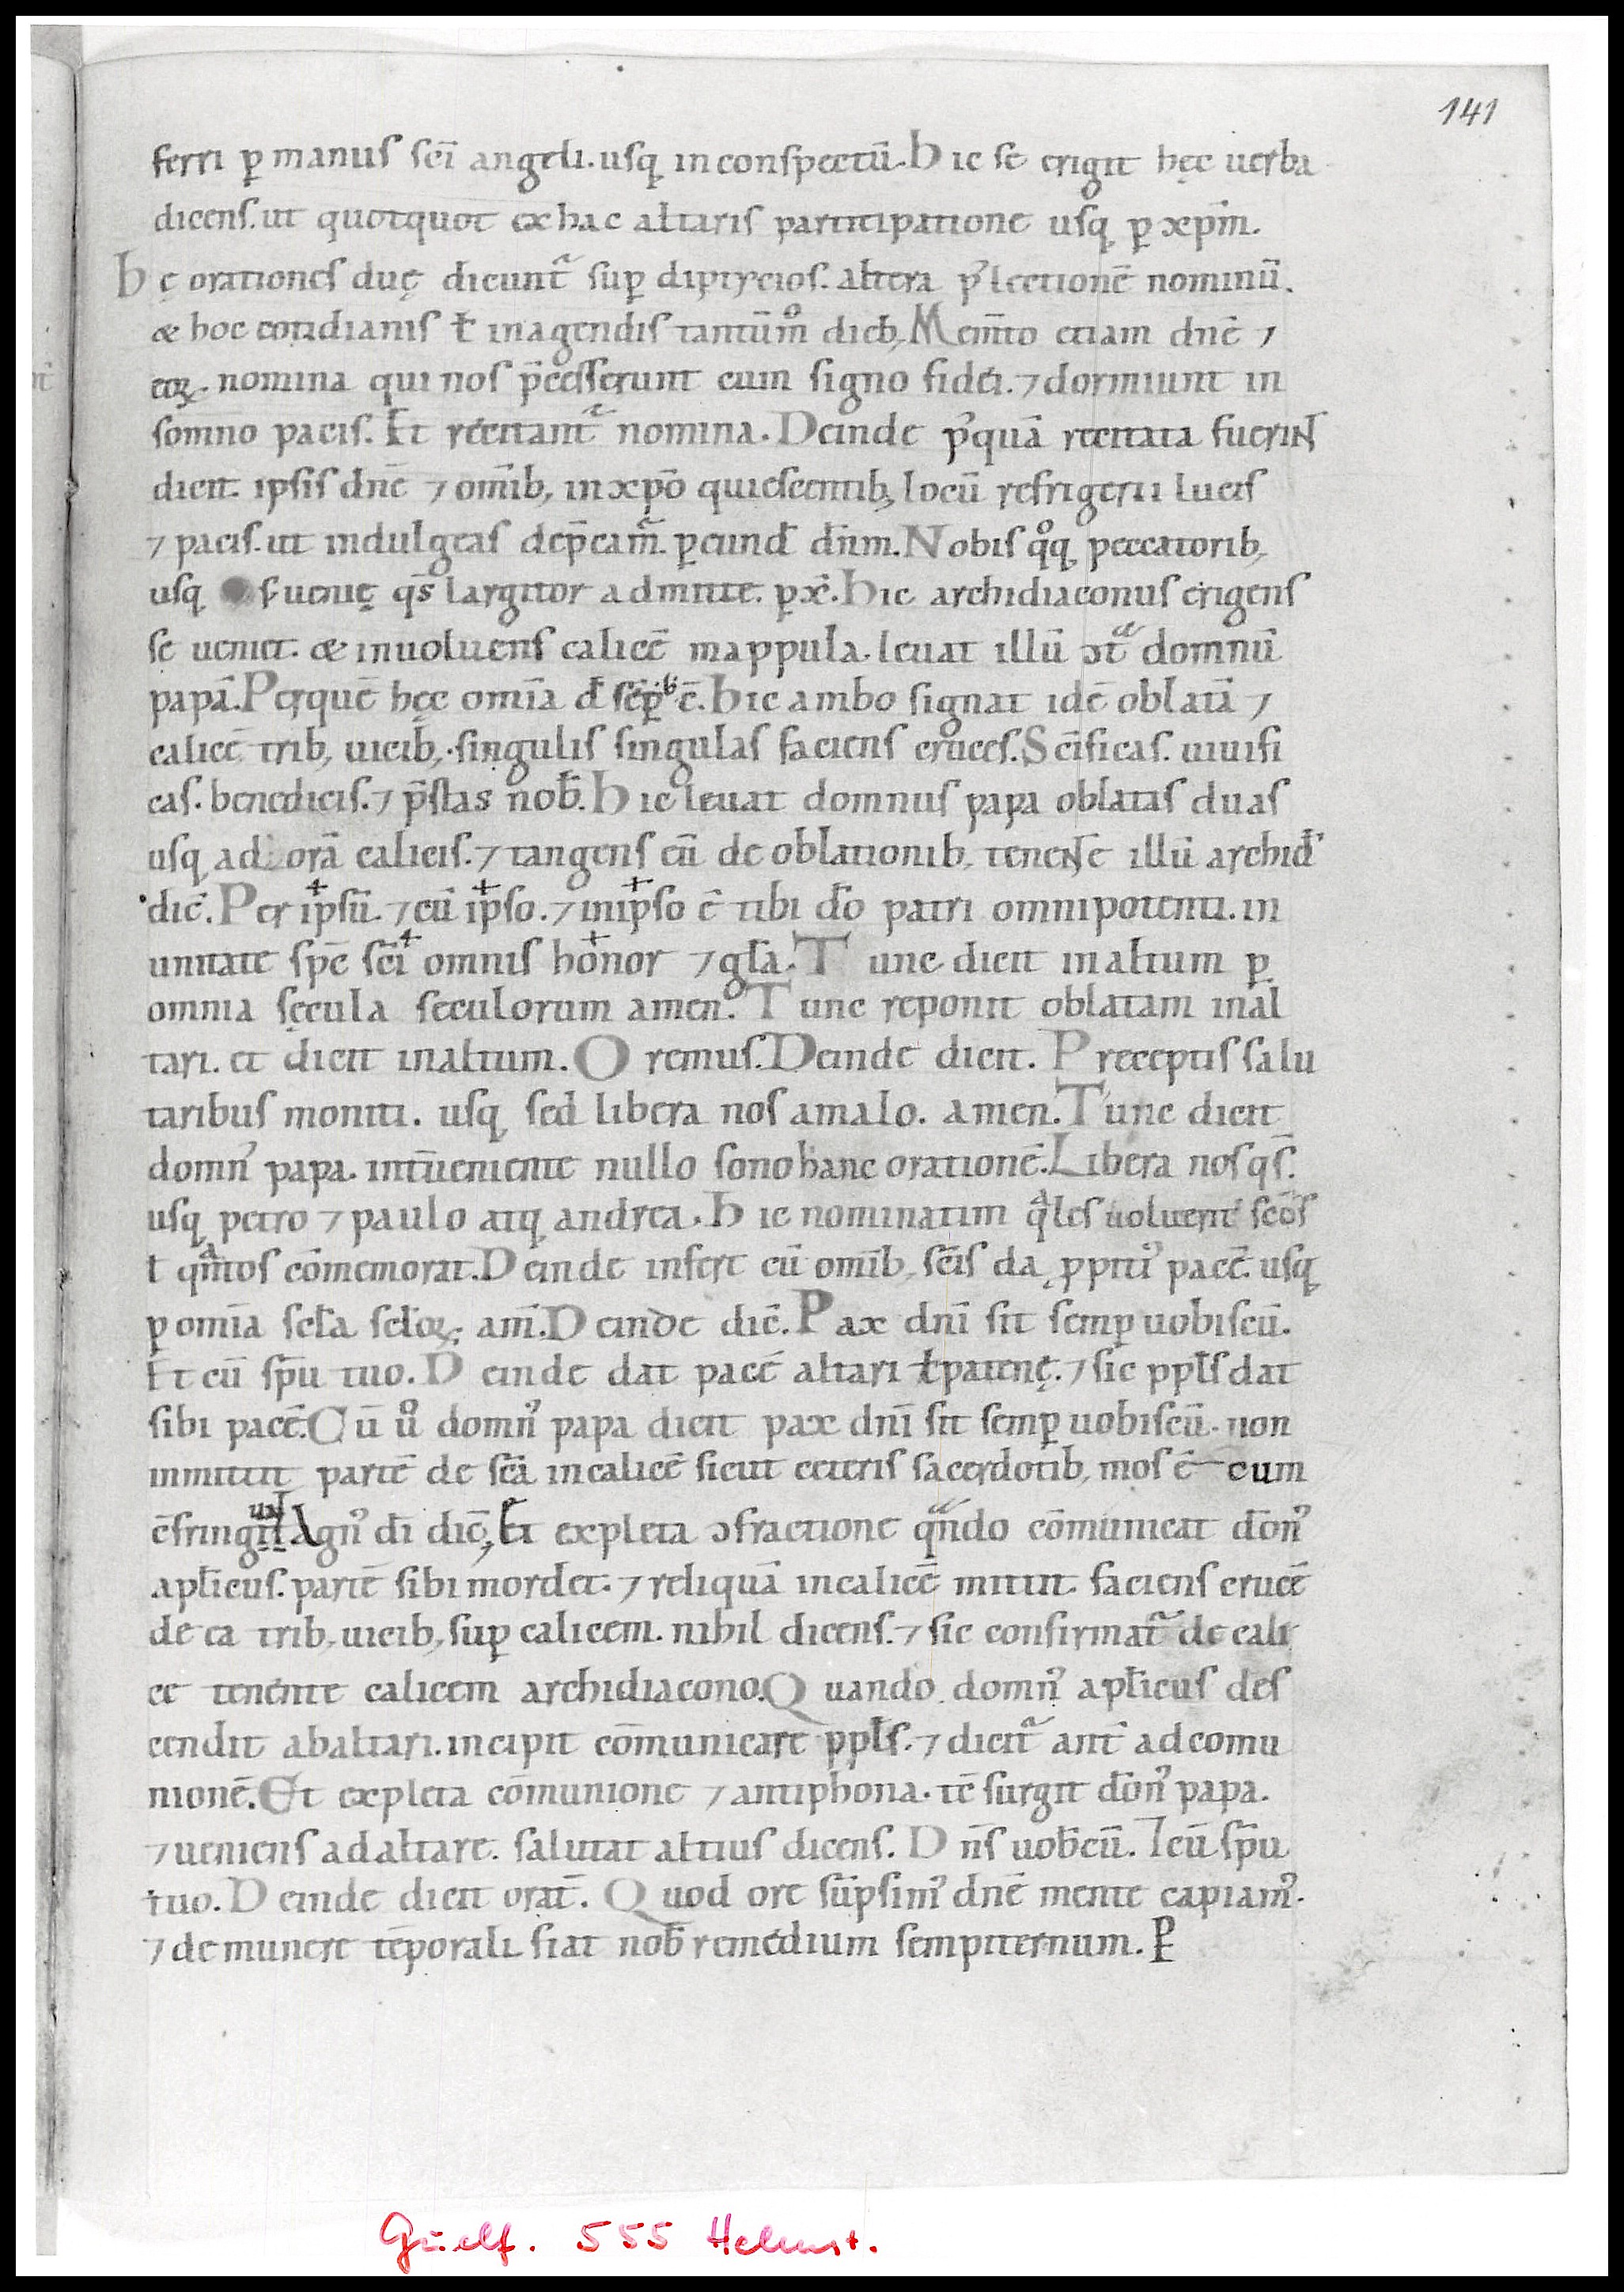 141
ferri ꝑ manus scī angeli. usq; in conspectū. Hic se erigit hęc uerba
dicens. ut quotquot ex hac altaris participatione usq; ꝑ xp̄m.
Hę orationes duę dicunt᷑ suꝑ diptycios. altera p᷒ lectionē nominū.
& hoc cotidianis ł in agendis tantūm̊ dieb; Mem̄to etiam dn̄e ⁊
eoꝝ. nomina qui nos p̄cesserunt cum signo fidei. ⁊ dormiunt in
somno pacis. Et recitant᷑ nomina. Deinde p᷒quā recitata fuerint
dicit. ipsis dn̄e ⁊ om̄ib; in xp̄o quiescentib; locū refrigerii lucis
⁊ pacis. ut indulgeas dep̄cam᷑. ꝑ eund̄ dn̄m. Nobis q̊q; peccatorib;
usq; s; uenię qs̄ largitor admitte. ꝑ x̄. Hic archidiaconus erigens
se ueniet. & inuoluens calicē mappula. leuat illū ɔt᷑ domnū
papā. Per quē hęc om̄ia d̄ sēꝑ b ē. Hic ambo signat idē oblatā ⁊
calicē trib; uicib; singulis singulas faciens cruces. Scīficas. uiuifi
cas. benedicis. ⁊ p̄stas nob̄. Hic leuat domnus papa oblatas duas
usq; ad orā calicis. ⁊ tangens eū de oblationib; tenente illū archid̄
dic̄. Per ip̄sū. ⁊ cū ip̄so. ⁊ in ip̄so ē tibi dō patri omnipotenti. in
unitate spc̄ scī omnis honor ⁊ gła. Tunc dicit in altum ꝑ
omnia sęcula seculorum amen. Tunc reponit oblatam in al
tari. et dicit in altum. Oremus. Deinde dicit. Preceptis salu
taribus moniti. usq; sed libera nos a malo. amen. Tunc dicit
domn᷒ papa. int̄ueniente nullo sono hanc orationē. Libera nos qs̄.
usq; petro ⁊ paulo atq; andrea. Hic nominatim q̊les uoluerit scōs
ł q̊ntos cōmemorat. Deinde infert cū om̄ib; scīs da ꝓpiti᷒ pacē. usq;
ꝑ om̄ia scła scłoꝝ. am̄. Deinde dic̄. Pax dn̄i sit semꝑ uobiscū.
Et cū sp̄u tuo. Deinde dat pacē altari ł patenę. ⁊ sic ppl̄s dat
sibi pacē. Cū ů domn᷒ papa dicit pax dn̄i sit semꝑ uobiscū. non
inmittit partē de scā in calicē sicut ceteris sacerdotib; mos ē cum
c̄fringit unt Agn᷒ dī dic̄; Et expleta ɔfractione q̊ndo cōmunicat dōn᷒
apłicus. partē sibi mordet. ⁊ reliquā in calicē mittit. faciens crucē
de ea trib; uicib; suꝑ calicem. nihil dicens. ⁊ sic confirmat᷑ de cali
ce tenente calicem archidiacono. Quando domn᷒ apłicus des
cendit ab altari. incipit cōmunicare ppl̄s. ⁊ dicit᷑ ant̄ ad comu
nionē. Et expleta cōmunione ⁊ antiphona. tc̄ surgit dōn᷒ papa.
⁊ ueniens ad altare. salutat altius dicens. Dn̄s uob̄cū. ⁊ cū sp̄u
tuo. Deinde dicit orat̄. Quod ore sūpsim᷒ dn̄e mente capiam᷒.
⁊ de munere tēporali fiat nob̄ remedium sempiternum. ꝑ
Guelf. 555 Helmst.